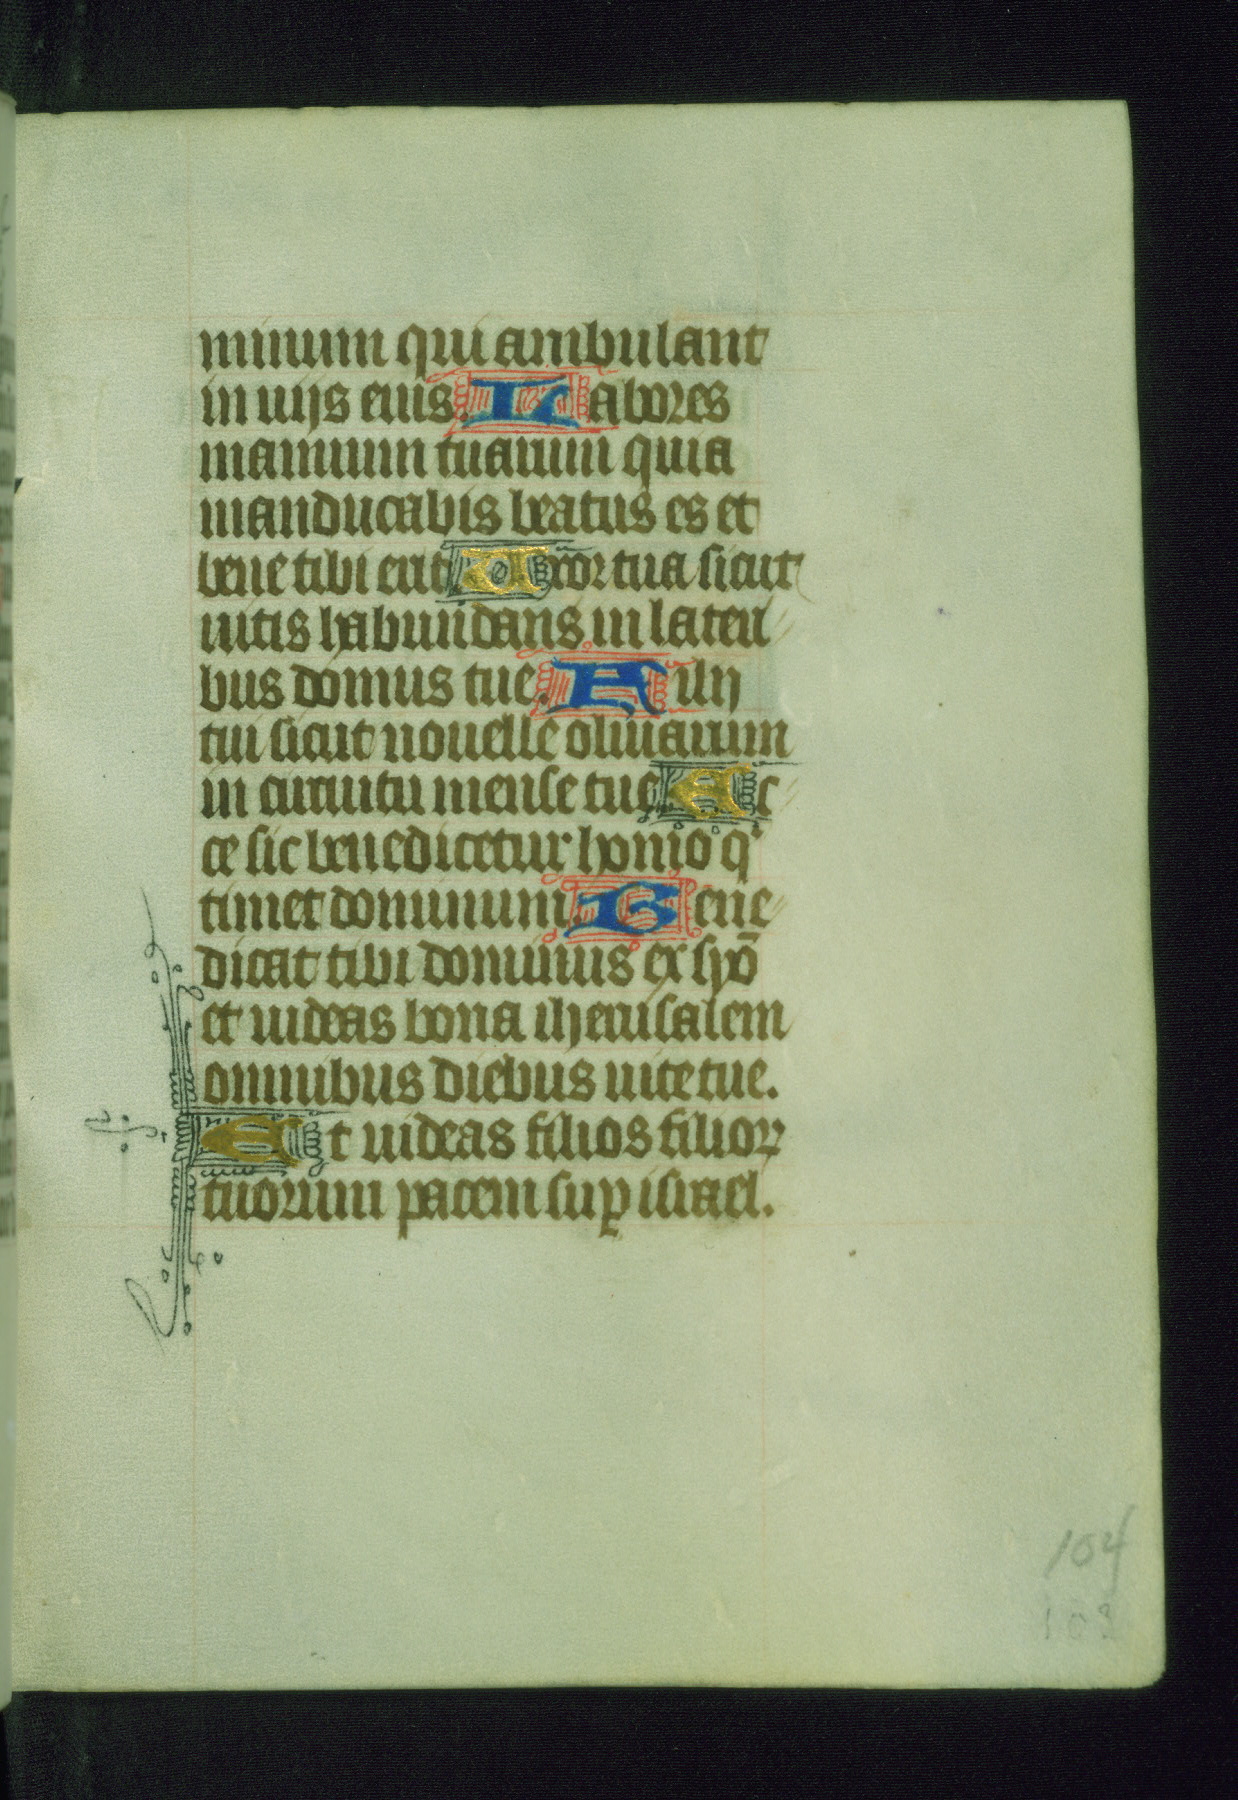 minum qui ambulant
in uijs eius. Labores
manuum tuarum quia
manducabis beatus es et
bene tibi erit. Uxor tua sicut
uitis habundans in lateri
bus domus tue. Filij
tui sicut nouelle oliuarum
in circuitu mense tue. Ec
ce sic benedicetur homo q'
timet dominum. Bene
dicat tibi dominus ex syō
et uideas bona iherusalem
omnibus diebus uite tue.
Et uideas filios filioꝝ
tuorum pacem suꝑ israel.
104